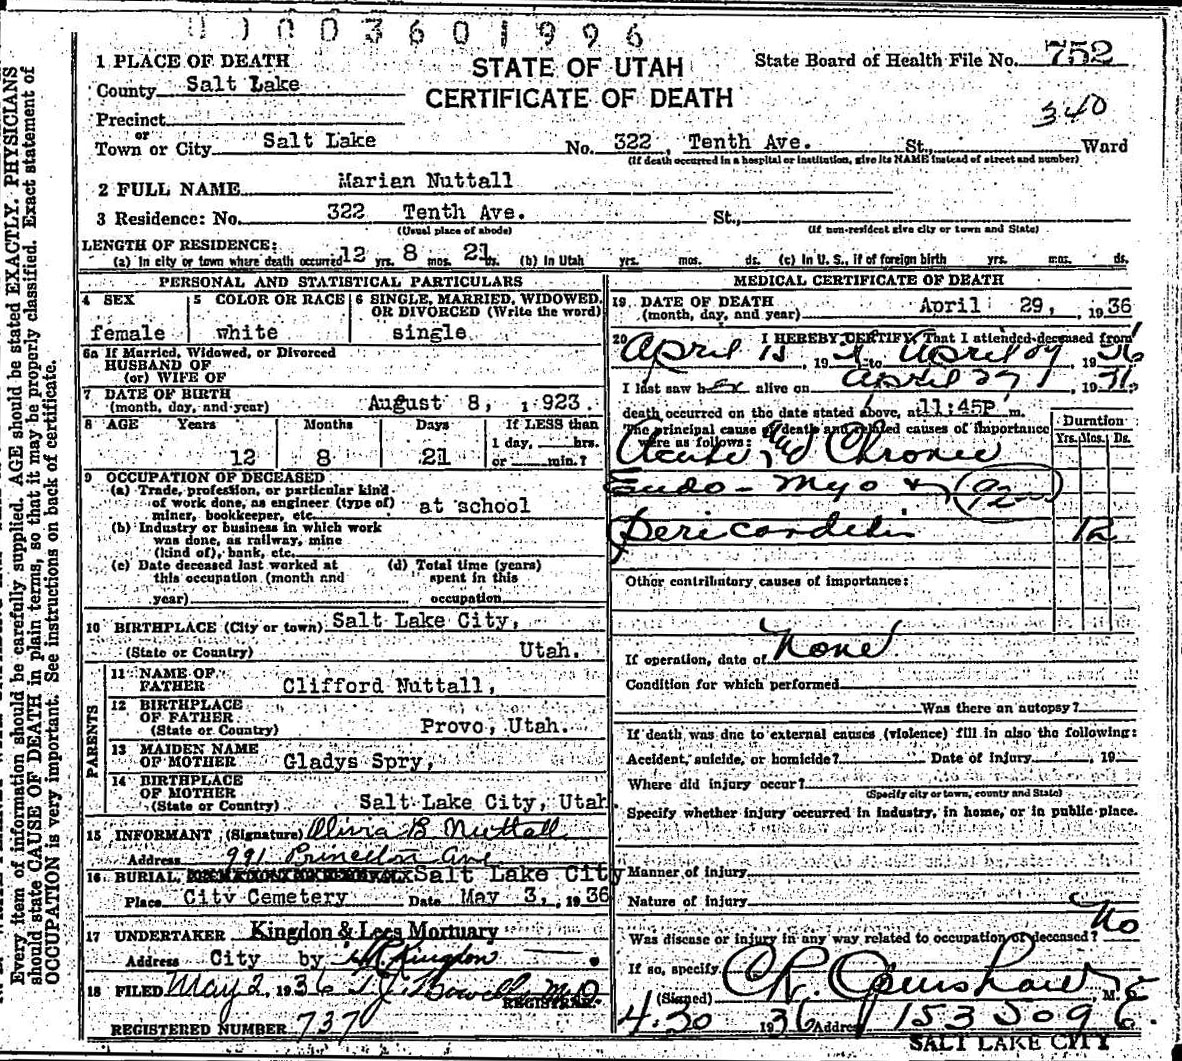 0003601996
1 PLACE OF DEATH
STATE OF UTAH
State Board of Health File No. 752
County Salt Lake
CERTIFICATE OF DEATH
340
Precinct
or
Town or City Salt Lake No. 322 Tenth Ave. St., Ward
(If death occurred in a hospital or institution, give its NAME instead of street and number)
2 FULL NAME Marian Nuttall
3 Residence: No. 322 Tenth Ave. St.,
(Usual place of abode) (If non-resident give city or town and State)
LENGTH OF RESIDENCE:
(a) In city or town where death occurred 12 yrs. 8 mos. 21 ds. (b) In Utah yrs. mos. ds. (c) In U. S., if of foreign birth yrs. mos. ds.
PERSONAL AND STATISTICAL PARTICULARS
4 SEX 5 COLOR OR RACE 6 SINGLE, MARRIED, WIDOWED, OR DIVORCED (Write the word)
female white single
6a If Married, Widowed, or Divorced
HUSBAND OF
(or) WIFE OF
7 DATE OF BIRTH
(month, day, and year) August 8, 1923.
8 AGE Years Months Days If LESS than
1 day, hrs.
12 8 21 or min.?
9 OCCUPATION OF DECEASED
(a) Trade, profession, or particular kind
of work done, as engineer (type of)
miner, bookkeeper, etc. at school
(b) Industry or business in which work
was done, as railway, mine
(kind of), bank, etc.
(c) Date deceased last worked at
this occupation (month and
year)
(d) Total time (years)
spent in this
occupation
10 BIRTHPLACE (City or town) Salt Lake City,
(State or Country) Utah.
PARENTS
11 NAME OF
FATHER Clifford Nuttall,
12 BIRTHPLACE
OF FATHER
(State or Country) Provo, Utah.
13 MAIDEN NAME
OF MOTHER Gladys Spry,
14 BIRTHPLACE
OF MOTHER
(State or Country) Salt Lake City, Utah
15 INFORMANT (Signature) Olivia B Nuttall
Address 991 Princeton Ave
16 BURIAL, Salt Lake City
Place City Cemetery Date May 3, 1936
17 UNDERTAKER Kingdon & Lees Mortuary
Address City by Kingdon
18 FILED May 2, 1936 T J Howell MD
REGISTRAR
REGISTERED NUMBER 737
MEDICAL CERTIFICATE OF DEATH
19 DATE OF DEATH
(month, day, and year) April 29, 1936
20 I HEREBY CERTIFY, That I attended deceased from
April 15, 19 to April 29 1936
I last saw her alive on April 29 1936
death occurred on the date stated above, at 11:45P m.
The principal cause of death and related causes of importance
were as follows:
Duration
Yrs. Mos. Ds.
Acute and Chronic
Endo-Myo &
Pericarditis 12
Other contributory causes of importance:
If operation, date of None
Condition for which performed
Was there an autopsy?
If death was due to external causes (violence) fill in also the following:
Accident, suicide, or homicide? Date of injury 19
Where did injury occur?
(Specify city or town, county and State)
Specify whether injury occurred in industry, in home, or in public place.
Manner of injury
Nature of injury
Was disease or injury in any way related to occupation of deceased? No
If so, specify
(Signed) C R Openshaw M.
4-30 1936 Address
SALT LAKE CITY
Every item of information should be carefully supplied. AGE should be stated EXACTLY. PHYSICIANS
should state CAUSE OF DEATH in plain terms, so that it may be properly classified. Exact statement of
OCCUPATION is very important. See instructions on back of certificate.